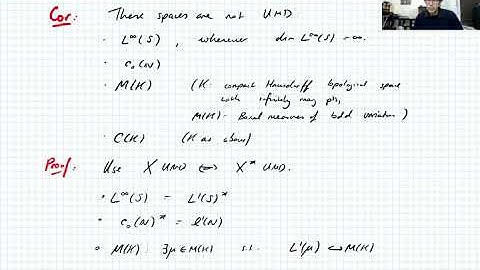 Cor: These spaces are not UMD
• L^∞(S) , whenever dim L^∞(S) = ∞.
• c₀(ℕ)
• M(K) (K compact Hausdorff topological space
with infinitely many pts,
M(K): Borel measures of bdd variation)
• C(K) (K as above)
Proof: Use X UMD ⟺ X* UMD.
• L^∞(S) = L¹(S)*
• c₀(ℕ)* = ℓ¹(ℕ)
• M(K): ∃μ∈M(K) s.t. L¹(μ) ↪ M(K)